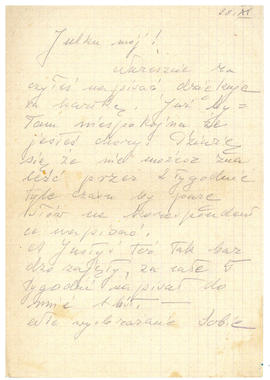 20.XI
Julku mój!
Wreszcie ra
czyłeś napisać dziękuję
za kartkę. Już by-
łam niespokojna że
jesteś chory! Dziwię
się że nie możesz zna
leść przez 2 tygodnie
tyle czasu by parę
słów na korespondent
ce napisać.
A Justyś też tak bar
dzo zajęty, za całe
tygodni napisał do
mnie 1 list. —
Ale wyobrażam sobie